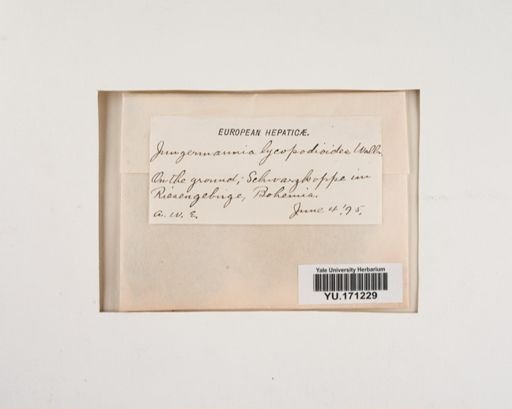 EUROPEAN HEPATICÆ.
Jungermannia lycopodioides Wallr.
On the ground; Schwarzkoppe im
Riesengebirge, Bohemia.
A. W. E. June 4 '95.
Yale University Herbarium
YU.171229